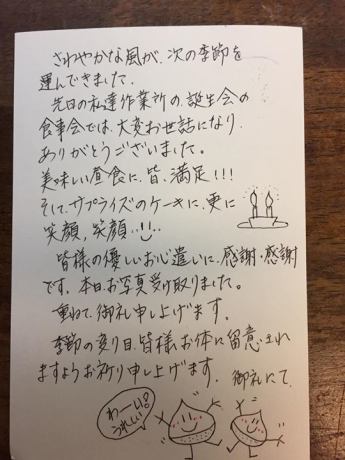 さわやかな風が、次の季節を
運んできました。
先日の私達作業所の、誕生会の
食事会では、大変お世話になり、
ありがとうございました。
美味しい昼食に、皆、満足!!!
そして、サプライズのケーキに、更に
笑顔、笑顔
皆様の優しいお心遣いに、感謝・感謝
です。本日お写真受け取りました。
重ねて、御礼申し上げます。
季節の変り目、皆様、お体に留意され
ますようお祈り申し上げます。 御礼にて、
わーい!
うれしい!